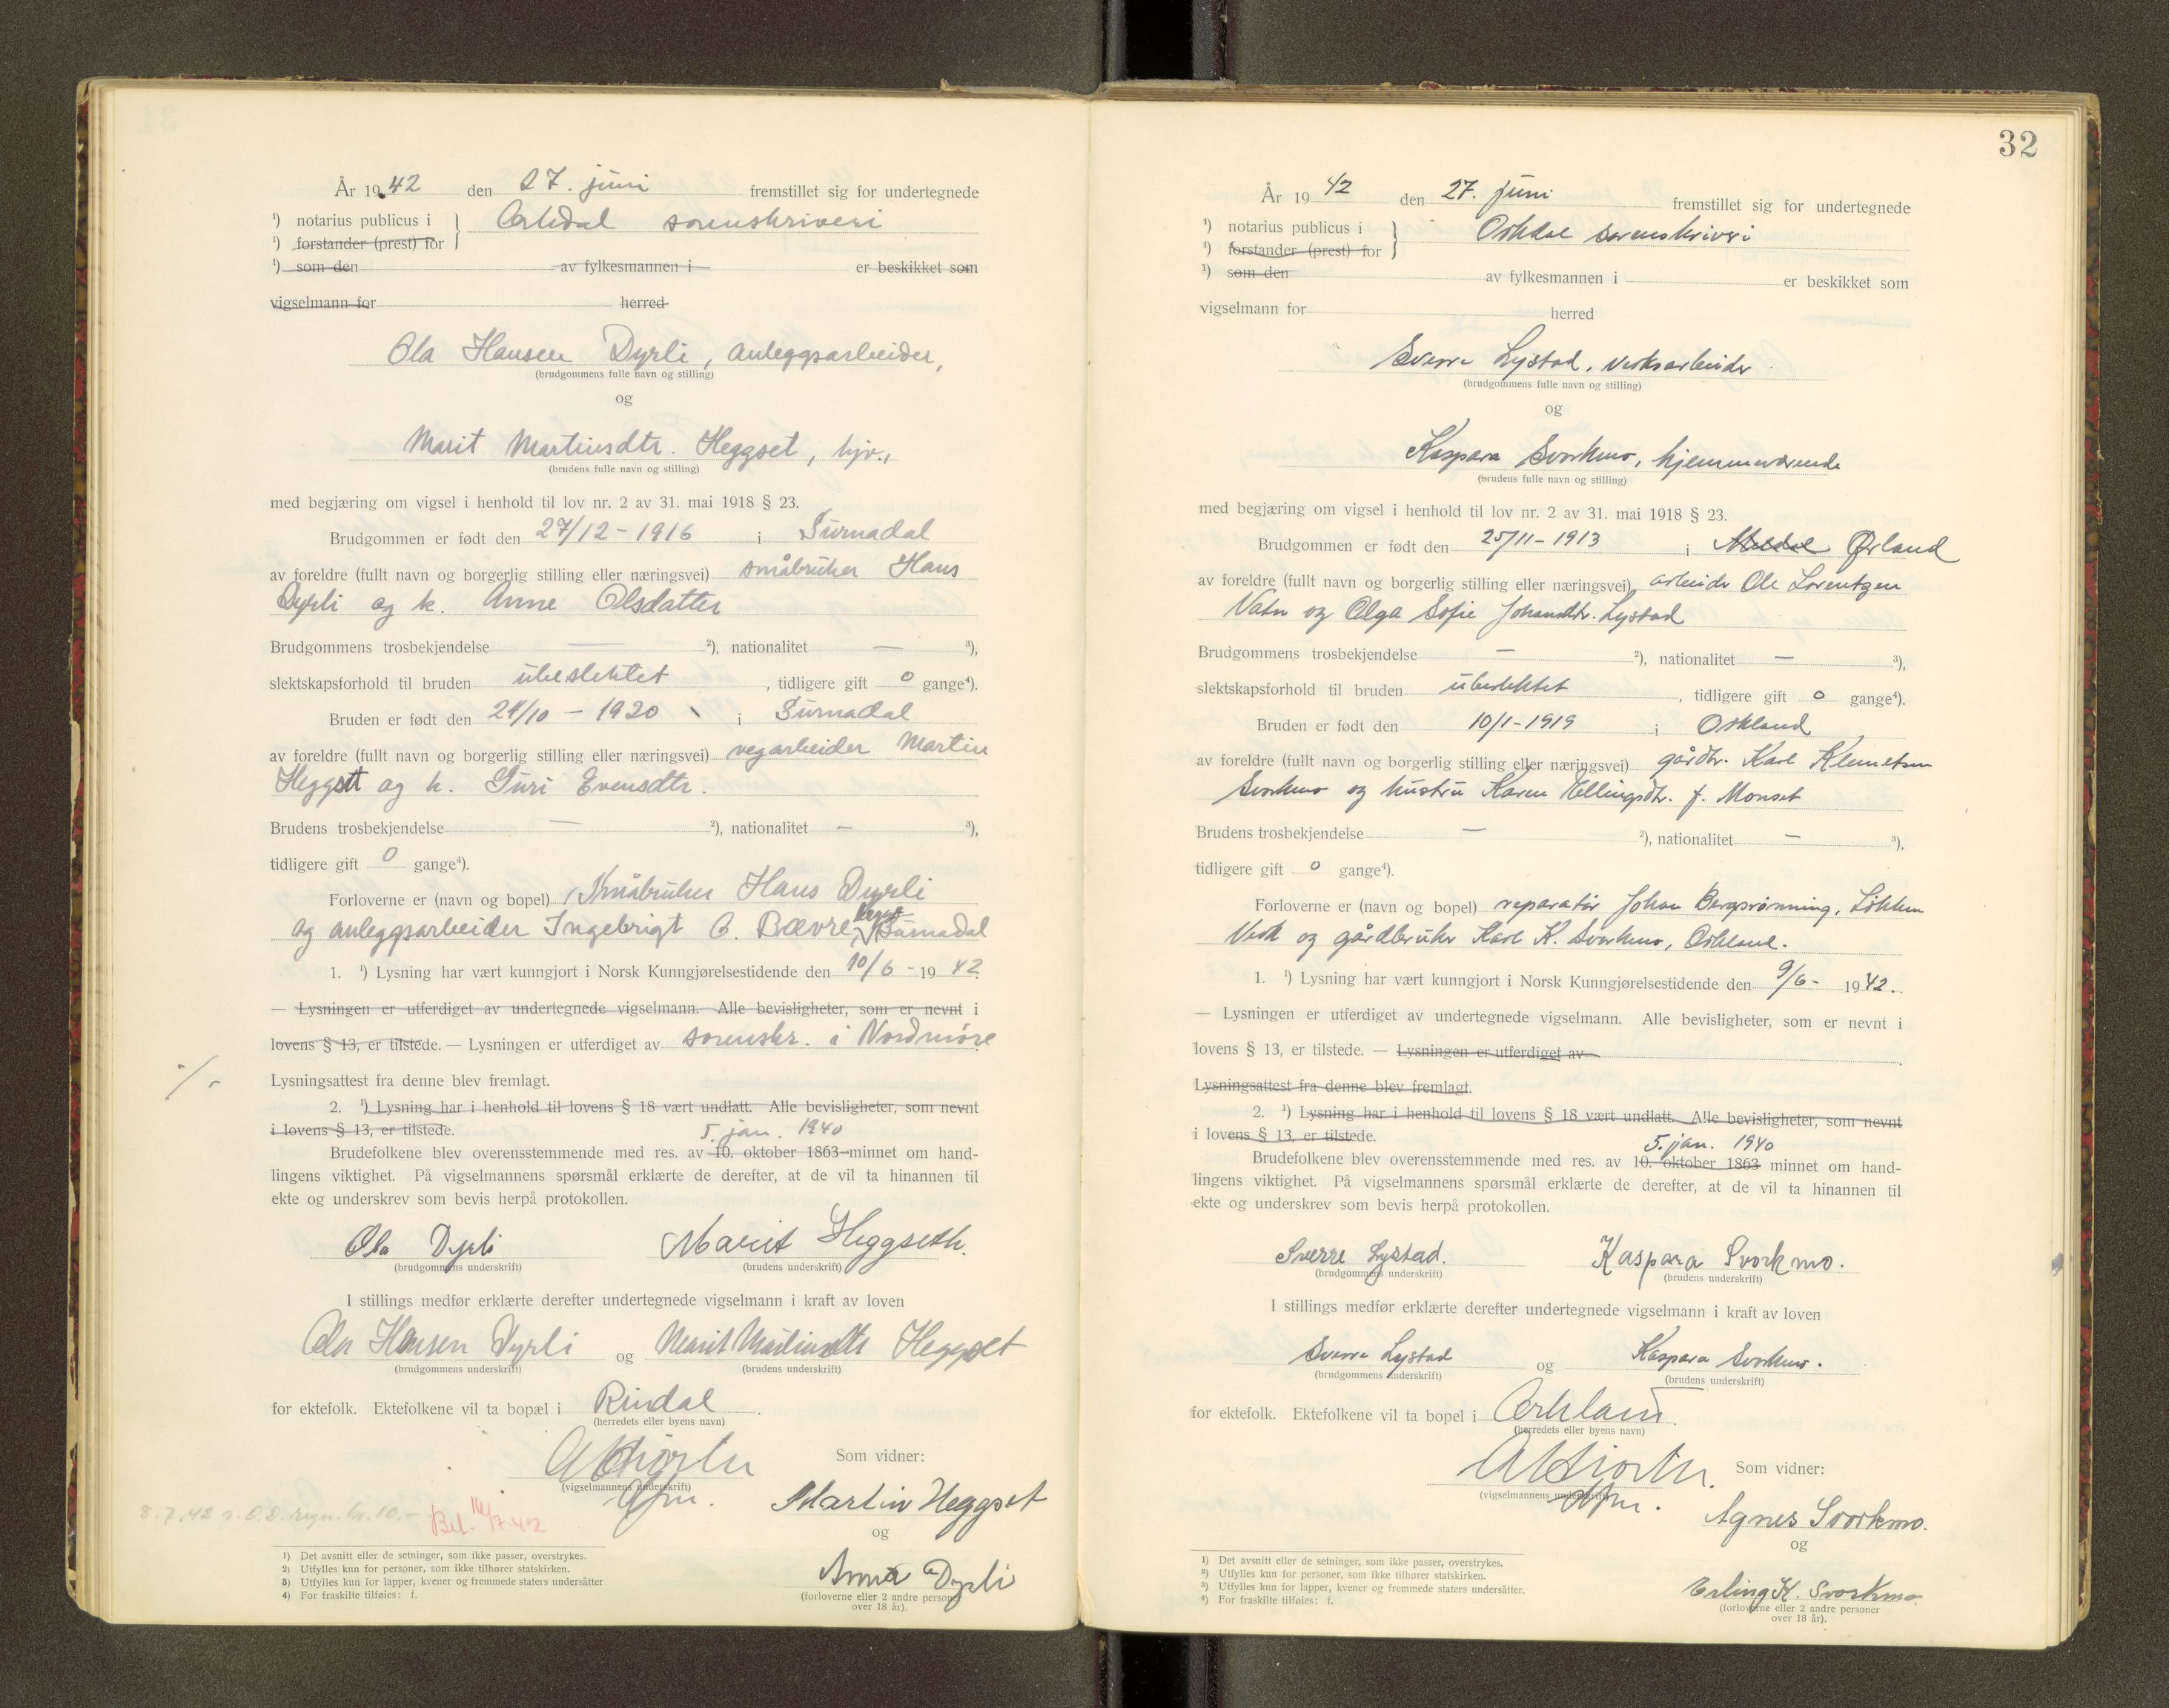 År 19 42 den 27. juni fremstillet sig for undertegnede
¹) notarius publicus i } Orkdal sorenskriveri
¹) forstander (prest) for
¹) som den av fylkesmannen i er beskikket som
vigselmann for herred
Ola Hansen Dyrli, anleggsarbeider,
(brudgommens fulle navn og stilling)
og
Marit Martinsdtr. Heggset, hjv.,
(brudens fulle navn og stilling)
med begjæring om vigsel i henhold til lov nr. 2 av 31. mai 1918 § 23.
Brudgommen er født den 27/12 - 1916 i Surnadal
av foreldre (fullt navn og borgerlig stilling eller næringsvei) småbruker Hans
Dyrli og h. Anne Olsdatter
Brudgommens trosbekjendelse — ²), nationalitet — ³),
slektskapsforhold til bruden ubeslektet, tidligere gift 0 gange⁴).
Bruden er født den 24/10 - 1920 i Surnadal
av foreldre (fullt navn og borgerlig stilling eller næringsvei) vegarbeider Martin
Heggset og h. Guri Evensdtr.
Brudens trosbekjendelse — ²), nationalitet — ³),
tidligere gift 0 gange⁴).
Forloverne er (navn og bopel) Småbruker Hans Dyrli
og anleggsarbeider Ingebrigt O. Bævre, Surnadal
1. ¹) Lysning har vært kunngjort i Norsk Kunngjørelsestidende den 10/6 - 19 42.
— Lysningen er utferdiget av undertegnede vigselmann. Alle bevisligheter, som er nevnt i
lovens § 13, er tilstede. — Lysningen er utferdiget av sorenskr. i Nordmøre
Lysningsattest fra denne blev fremlagt.
2. ¹) Lysning har i henhold til lovens § 18 vært undlatt. Alle bevisligheter, som nevnt
i lovens § 13, er tilstede.
5. jan. 1940
Brudefolkene blev overensstemmende med res. av 10. oktober 1863 minnet om hand-
lingens viktighet. På vigselmannens spørsmål erklærte de derefter, at de vil ta hinannen til
ekte og underskrev som bevis herpå protokollen.
Ola Dyrli Marit Heggseth.
(brudgommens underskrift) (brudens underskrift)
I stillings medfør erklærte derefter undertegnede vigselmann i kraft av loven
Ola Hansen Dyrli og Marit Martinsdtr Heggset
(brudgommens underskrift) (brudens underskrift)
for ektefolk. Ektefolkene vil ta bopæl i Rindal.
(herredets eller byens navn)
Som vidner:
(vigselmannens underskrift)
Martin Heggset
8.7.42 regn. kr. 10.- Bet. 14/7-42
og
Anna Dyrli
(forloverne eller 2 andre personer
over 18 år).
1) Det avsnitt eller de setninger, som ikke passer, overstrykes.
2) Utfylles kun for personer, som ikke tilhører statskirken.
3) Utfylles kun for lapper, kvener og fremmede staters undersåtter
4) For fraskilte tilføies: f.
32
År 19 42 den 27. juni fremstillet sig for undertegnede
¹) notarius publicus i } Orkdal sorenskriveri
¹) forstander (prest) for
¹) som den av fylkesmannen i er beskikket som
vigselmann for herred
Sverre Lystad, verksarbeider
(brudgommens fulle navn og stilling)
og
Kaspara Svorkmo, hjemmeværende
(brudens fulle navn og stilling)
med begjæring om vigsel i henhold til lov nr. 2 av 31. mai 1918 § 23.
Brudgommen er født den 25/11 - 1913 i Meldal Ørland
av foreldre (fullt navn og borgerlig stilling eller næringsvei) arbeider Ole Lorentzen
Vatn og Olga Sofie Johansdtr. Lystad
Brudgommens trosbekjendelse — ²), nationalitet — ³),
slektskapsforhold til bruden ubeslektet, tidligere gift 0 gange⁴).
Bruden er født den 10/1 - 1919 i Orkland
av foreldre (fullt navn og borgerlig stilling eller næringsvei) gårdbr. Karl Klemetsen
Svorkmo og hustru Karen Ellingsdtr. f. Monset
Brudens trosbekjendelse — ²), nationalitet — ³),
tidligere gift 0 gange⁴).
Forloverne er (navn og bopel) reparatør Johan Bergsrønning, Løkken
Verk og gårdbruker Karl K. Svorkmo, Orkland.
1. ¹) Lysning har vært kunngjort i Norsk Kunngjørelsestidende den 9/6 - 1942.
— Lysningen er utferdiget av undertegnede vigselmann. Alle bevisligheter, som er nevnt i
lovens § 13, er tilstede. — Lysningen er utferdiget av
Lysningsattest fra denne blev fremlagt.
2. ¹) Lysning har i henhold til lovens § 18 vært undlatt. Alle bevisligheter, som nevnt
i lovens § 13, er tilstede.
5. jan. 1940
Brudefolkene blev overensstemmende med res. av 10. oktober 1863 minnet om hand-
lingens viktighet. På vigselmannens spørsmål erklærte de derefter, at de vil ta hinannen til
ekte og underskrev som bevis herpå protokollen.
Sverre Lystad. Kaspara Svorkmo.
(brudgommens underskrift) (brudens underskrift)
I stillings medfør erklærte derefter undertegnede vigselmann i kraft av loven
Sverre Lystad og Kaspara Svorkmo.
(brudgommens underskrift) (brudens underskrift)
for ektefolk. Ektefolkene vil ta bopel i Orkland.
(herredets eller byens navn)
Som vidner:
(vigselmannens underskrift)
Agnes Svorkmo.
og
Erling K. Svorkmo.
(forloverne eller 2 andre personer
over 18 år).
1) Det avsnitt eller de setninger, som ikke passer, overstrykes.
2) Utfylles kun for personer, som ikke tilhører statskirken.
3) Utfylles kun for lapper, kvener og fremmede staters undersåtter.
4) For fraskilte tilføies: f.